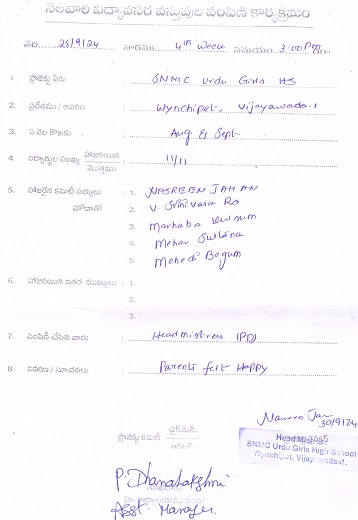 నెలవారీ విద్యావసర వస్తువుల పంపిణీ కార్యక్రమం
తేది. 25/9/24 వారము 4th week సమయం. 3.00 PM గం॥
1. ప్రాజెక్టు పేరు : SNMC Urdu Girls HS
2. ప్రదేశము / ఆవరణ : Wynchipet, Vijayawada-1
3. ఏ నెల కొఱకు : Aug & Sept.
4. విద్యార్థుల సంఖ్య హాజరయిన / మొత్తము : 11/11
5. హాజరైన కమిటీ సభ్యులు : 1. NASREEN JAHAN
హోదాతో 2. V. Srinivasa Ro
3. Marhaba Kusum
4. Mehar Sultana
5. Mehedi Begum
6. హాజరయిన ఇతర ముఖ్యులు : 1.
2.
3.
7. పంపిణీ చేసిన వారు : Headmistress (PD)
8. వివరణ / సూచనలు : Parents felt Happy
Nasreen Jan
30/9/24
ప్రాజెక్టు కమిటీ ఛైర్మెన్.
SNMC Urdu Girls High School
Wynchipet, Vijayawada-1.
P. Dhanalakshmi
Asst. Manager.